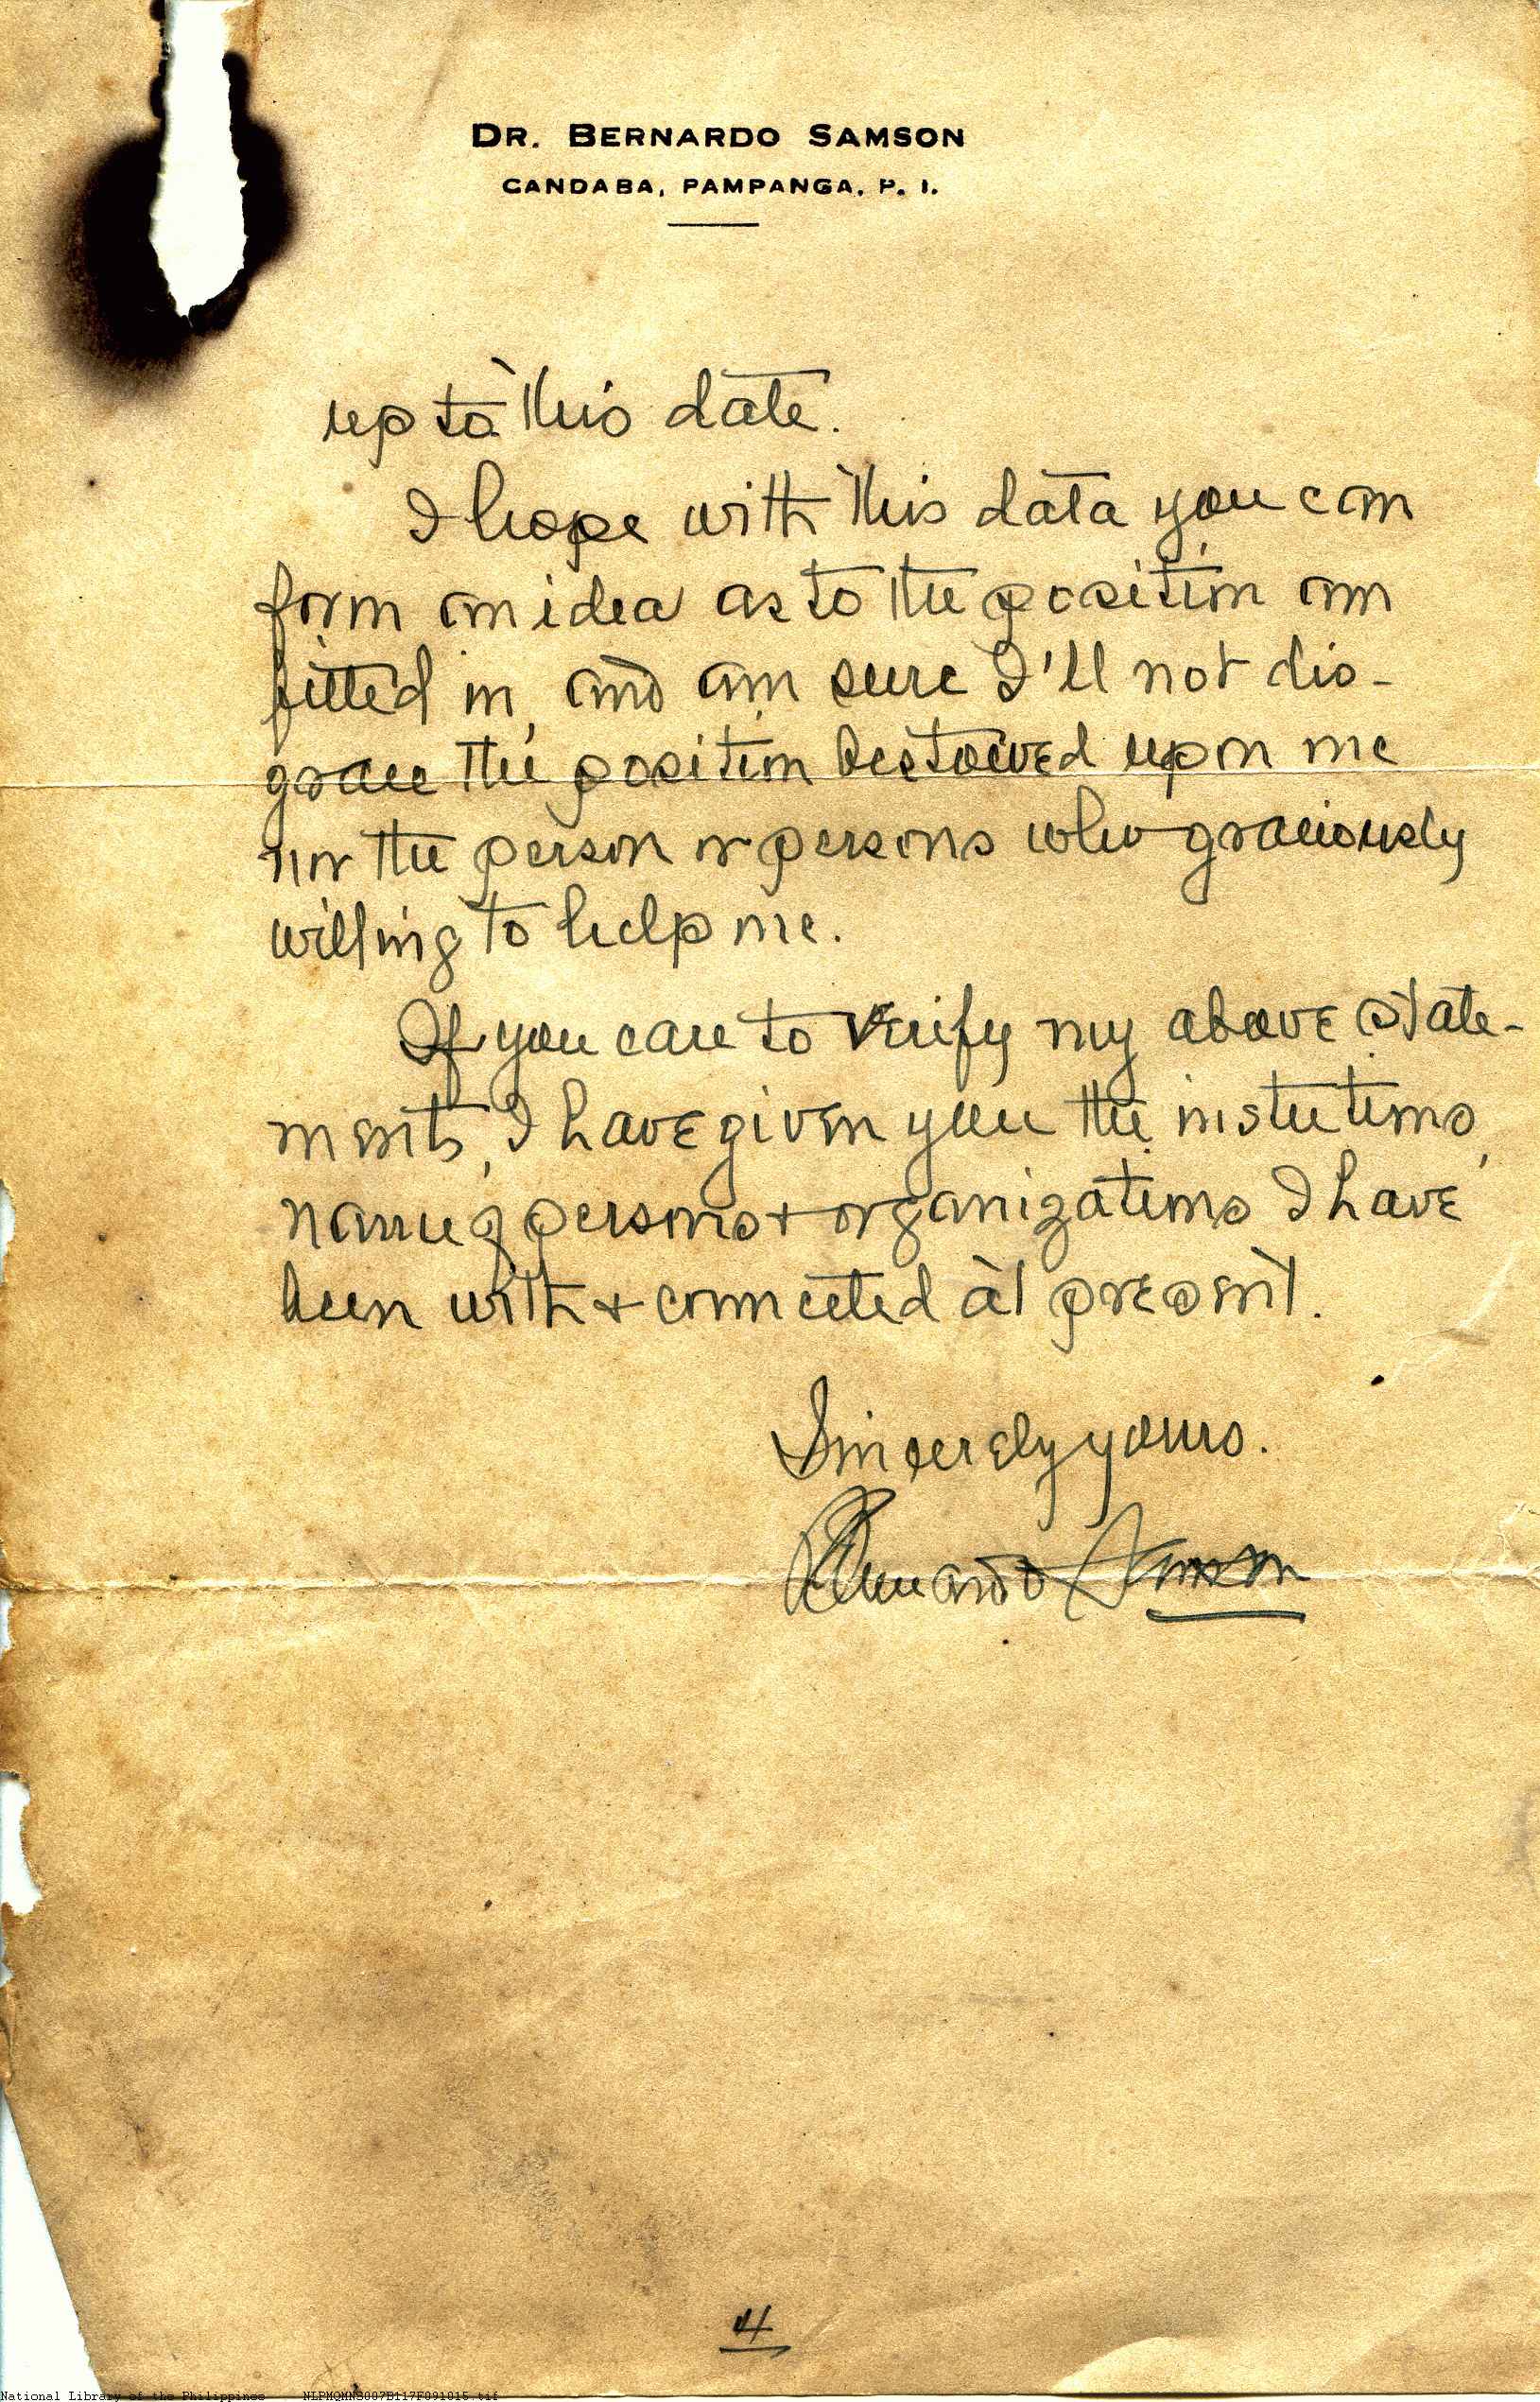 DR. BERNARDO SAMSON
CANDABA, PAMPANGA, P. I.
up to this date.
I hope with this data you can
form an idea as to the position am
fitted in, and am sure I'll not dis-
grace the position bestowed upon me
nor the person or persons who graciously
willing to help me.
If you care to verify my above state-
ments, I have given you the institutions,
name of persons + organizations I have
been with + connected at present.
Sincerely yours.
Bernardo Samson
4
National Library of the Philippines NLPMQMNS007B117F091015.tif